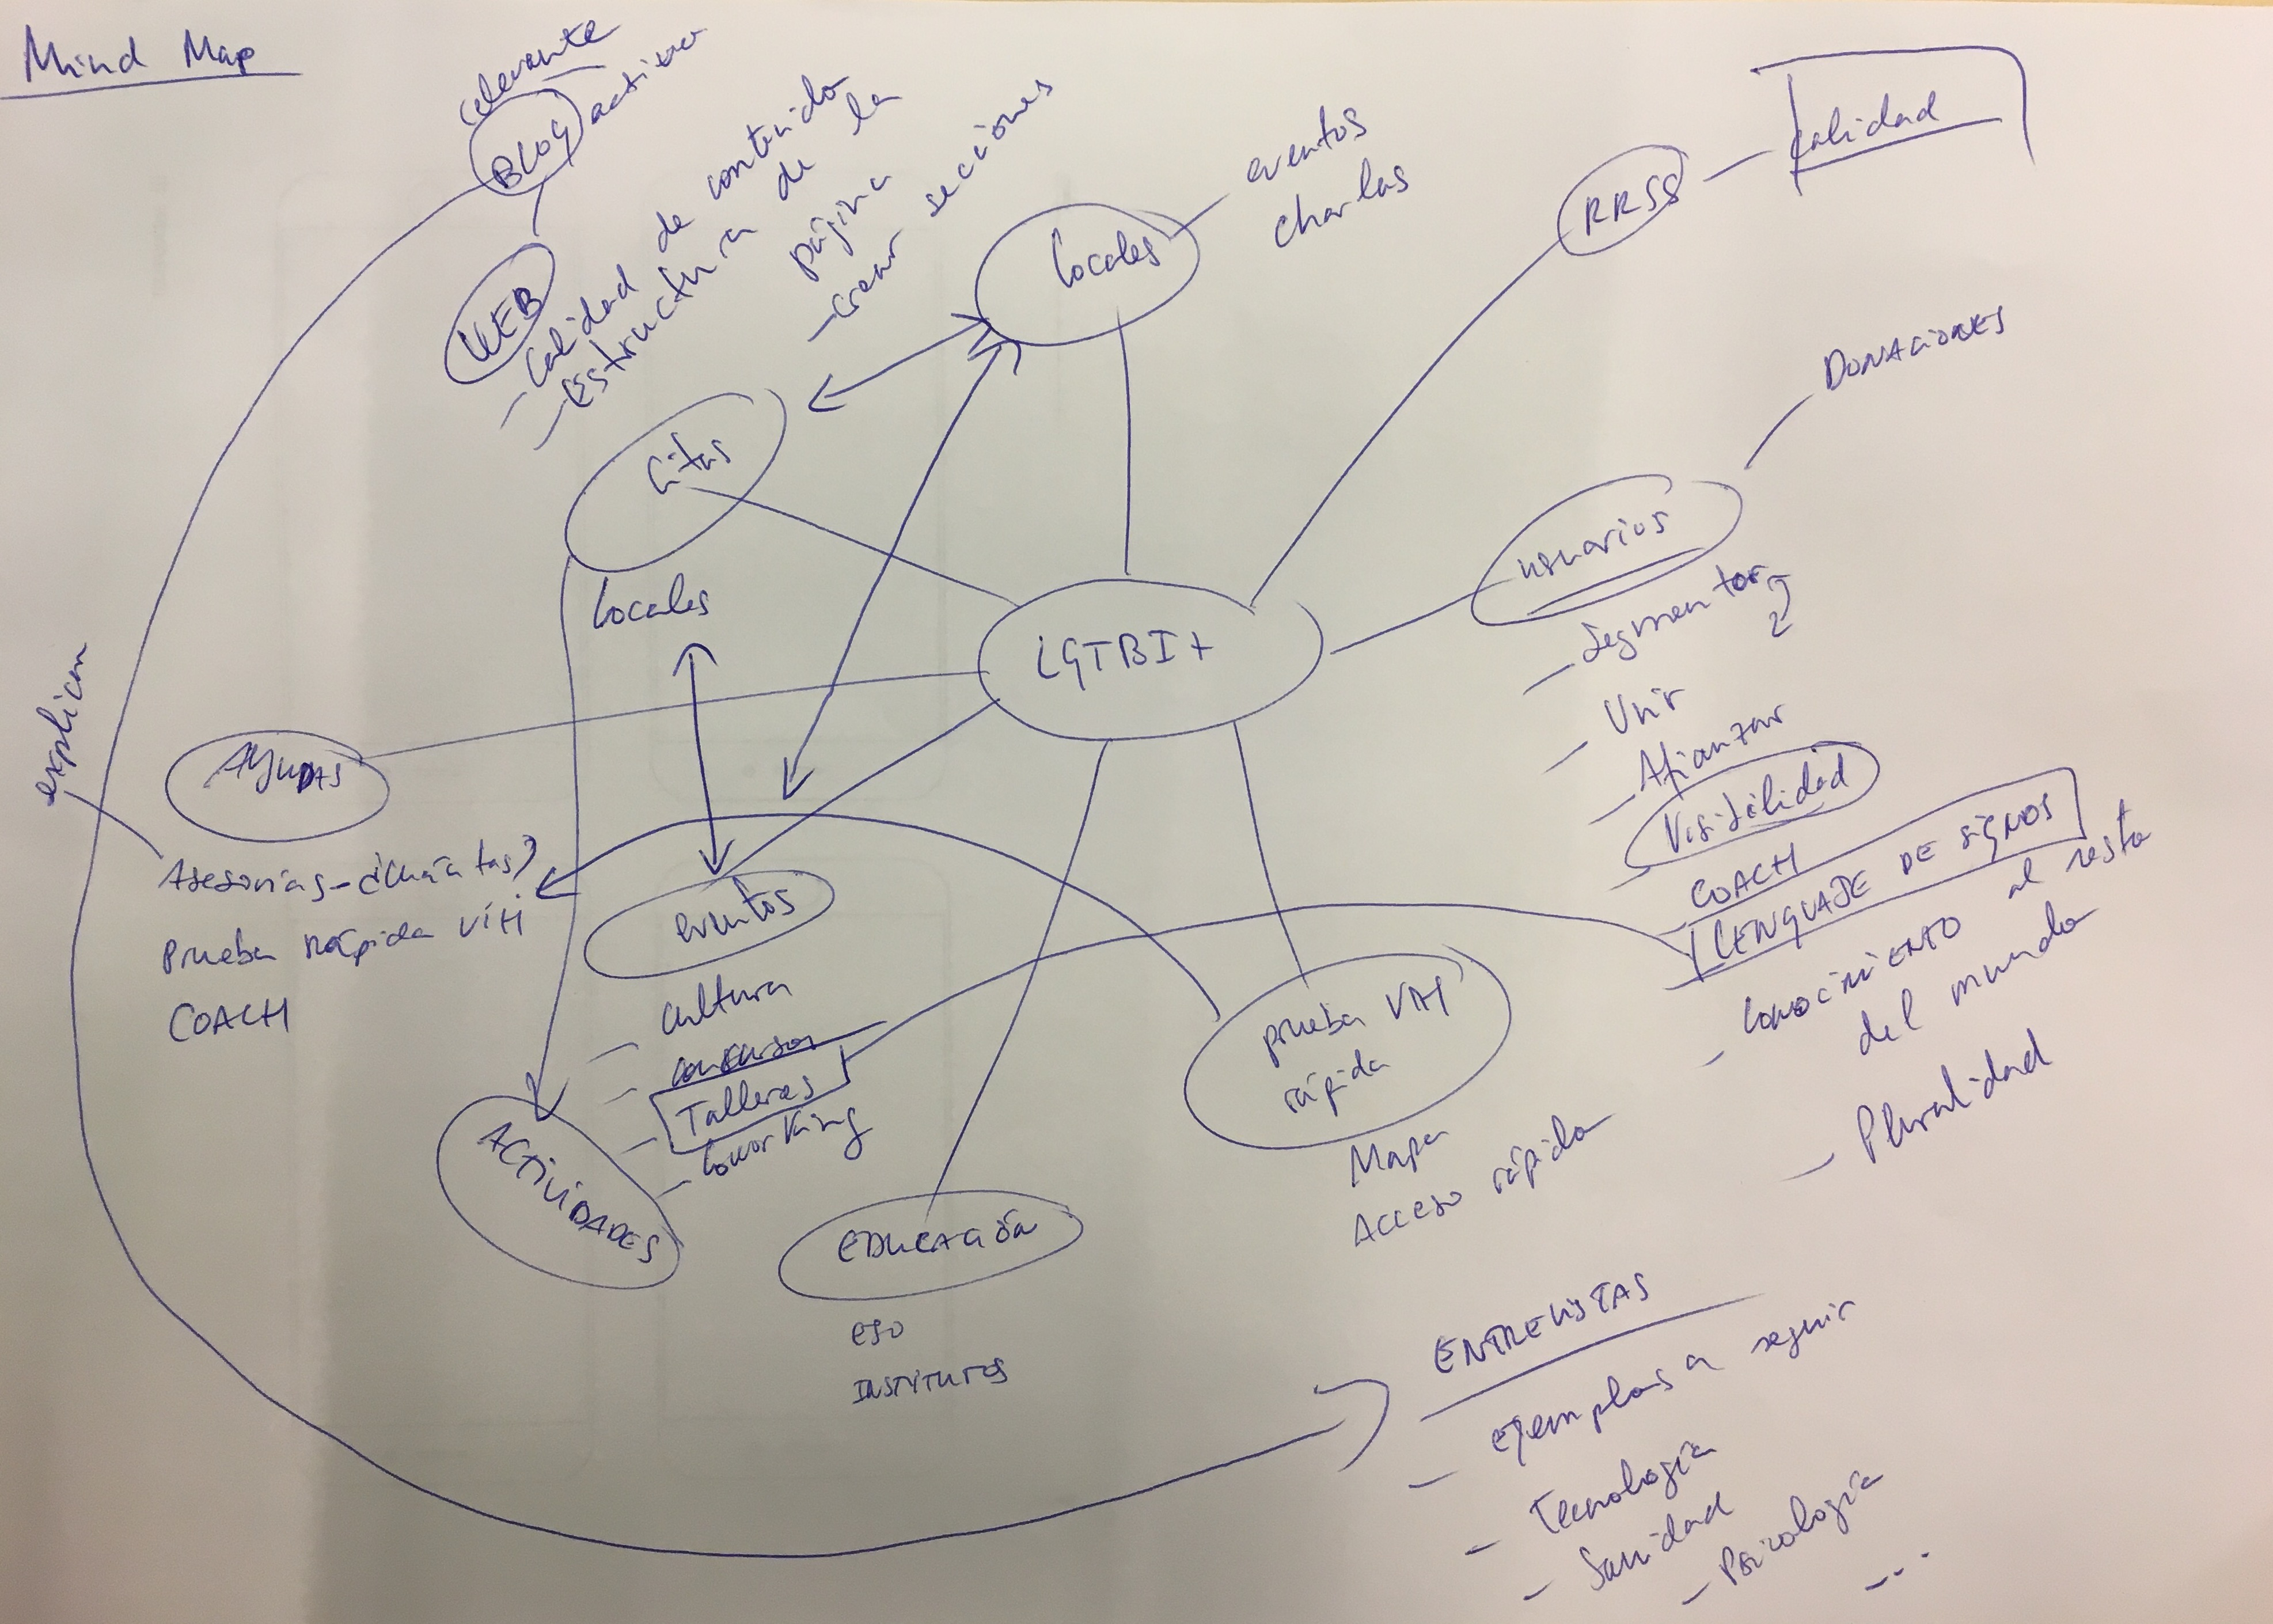 Mind Map
relevante
BLOG activo
WEB
- Calidad de contenido
- Estructura de la
página
- crear secciones
Locales
eventos
charlas
RRSS - Calidad
Citas
Locales
LGTBI+
DONACIONES
usuarios
- Segmentar
- Unir
- Afianzar
- Visibilidad
COACH
LENGUAJE DE SIGNOS
- CONOCIMIENTO al resto
del mundo
- Pluralidad
explican
AYUDAS
Asesorías -
Prueba rápida VIH
COACH
eventos
- Cultura
- Talleres
- Coworking
ACTIVIDADES
EDUCACIÓN
ESO
INSTITUTOS
prueba VIH
rápida
Mapa
Acceso rápido
ENTREVISTAS
- Ejemplos a seguir
- Tecnología
- Sanidad
- Psicología
- ...